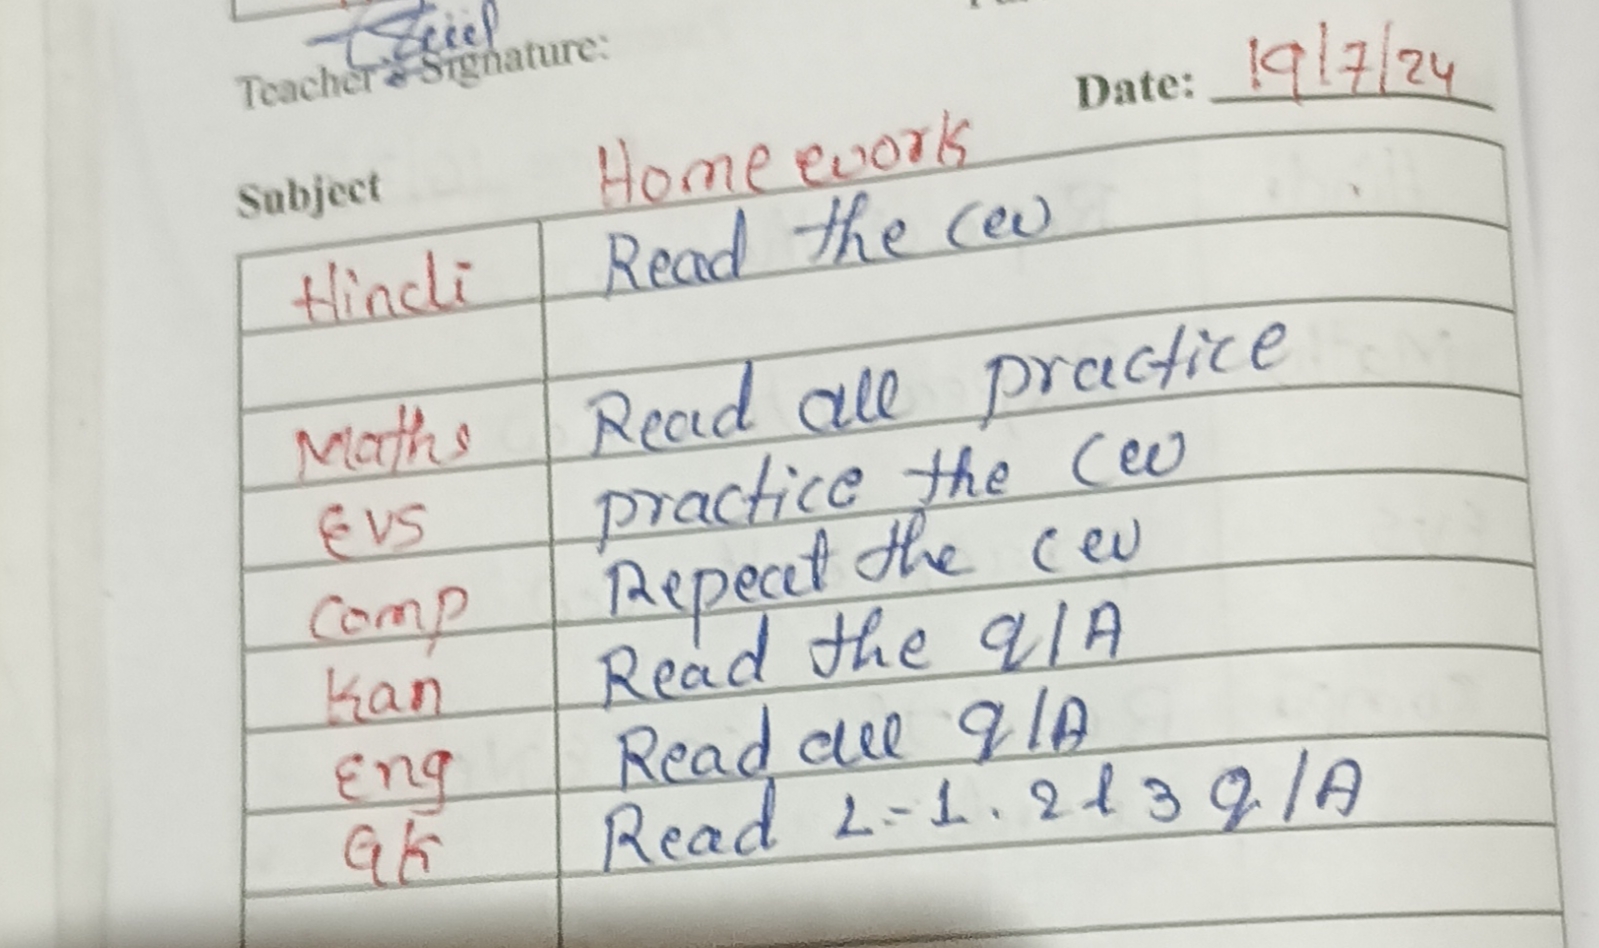 Teacher's Signature:
Date: 19/7/24
Subject Homework
Hindi Read the cw
Maths Read all practice
EVS practice the cw
Comp Repeat the cw
Kan Read the q/A
Eng Read all q/A
GK Read L-1. 2 & 3 q/A